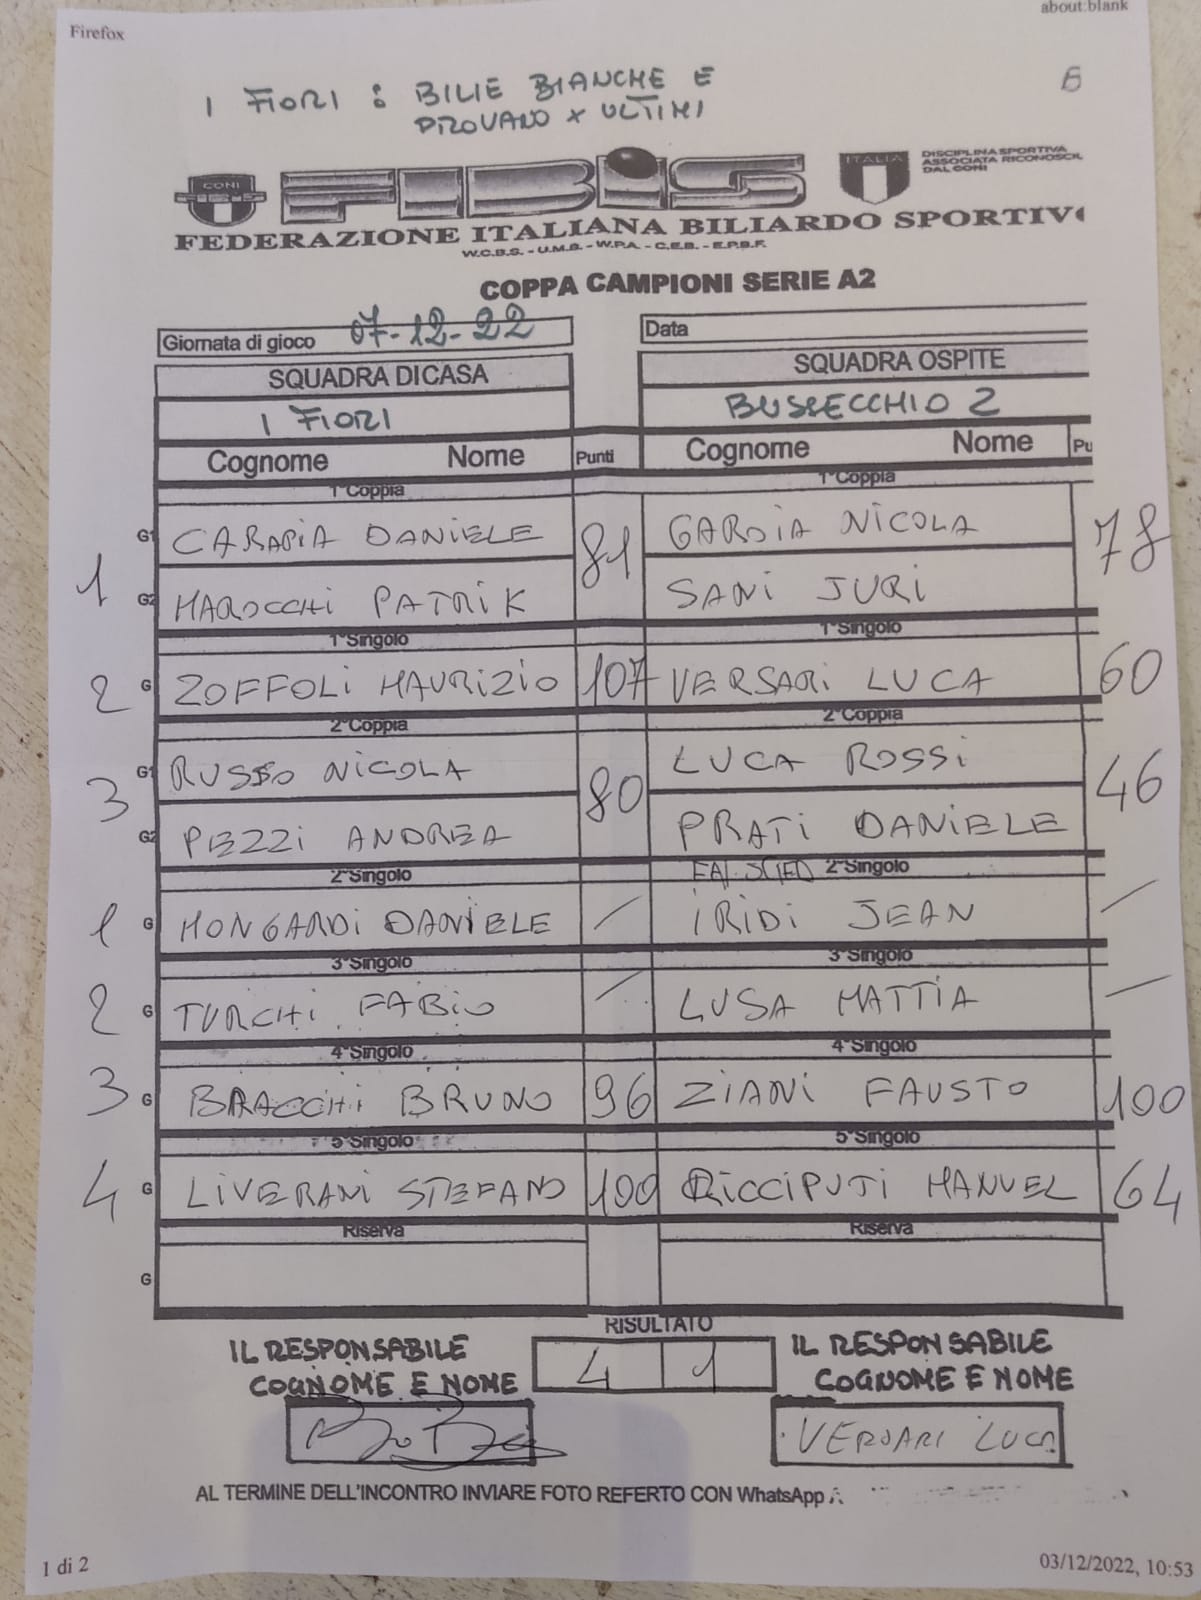 Firefox
about:blank
I FIORI : BILIE BIANCHE E
PROVANO X ULTIMI
CONI
FIBiS
ITALIA
DISCIPLINA SPORTIVA
ASSOCIATA RICONOSCIU
DAL CONI
FEDERAZIONE ITALIANA BILIARDO SPORTIVO
W.C.B.S. - U.M.B. - W.P.A. - C.E.B. - E.P.B.F.
COPPA CAMPIONI SERIE A2
Giornata di gioco 07-12-22
Data
SQUADRA DI CASA SQUADRA OSPITE
I FIORI BUSSECCHIO 2
Cognome Nome Punti Cognome Nome Pu
1°Coppia 1°Coppia
1 G1 CARAPIA DANIELE 81 GARDIA NICOLA 78
G2 MAROCCHI PATRIK SANI JURI
1°Singolo 1°Singolo
2 G ZOFFOLI MAURIZIO 107 VERSARI LUCA 60
2°Coppia 2°Coppia
3 G1 RUSSO NICOLA 80 LUCA ROSSI 46
G2 PEZZI ANDREA PRATI DANIELE
2°Singolo 2°Singolo
1 G MONGARDI DANIELE / IRIDI JEAN /
3°Singolo 3°Singolo
2 G TURCHI FABIO / LUSA MATTIA /
4°Singolo 4°Singolo
3 G BRACCHI BRUNO 96 ZIANI FAUSTO 100
5°Singolo 5°Singolo
4 G LIVERANI STEFANO 100 RICCIPUTI MANUEL 64
Riserva Riserva
G
RISULTATO
IL RESPONSABILE 4 1 IL RESPONSABILE
COGNOME E NOME COGNOME E NOME
VERSARI LUCA
AL TERMINE DELL'INCONTRO INVIARE FOTO REFERTO CON WhatsApp A
1 di 2
03/12/2022, 10:53